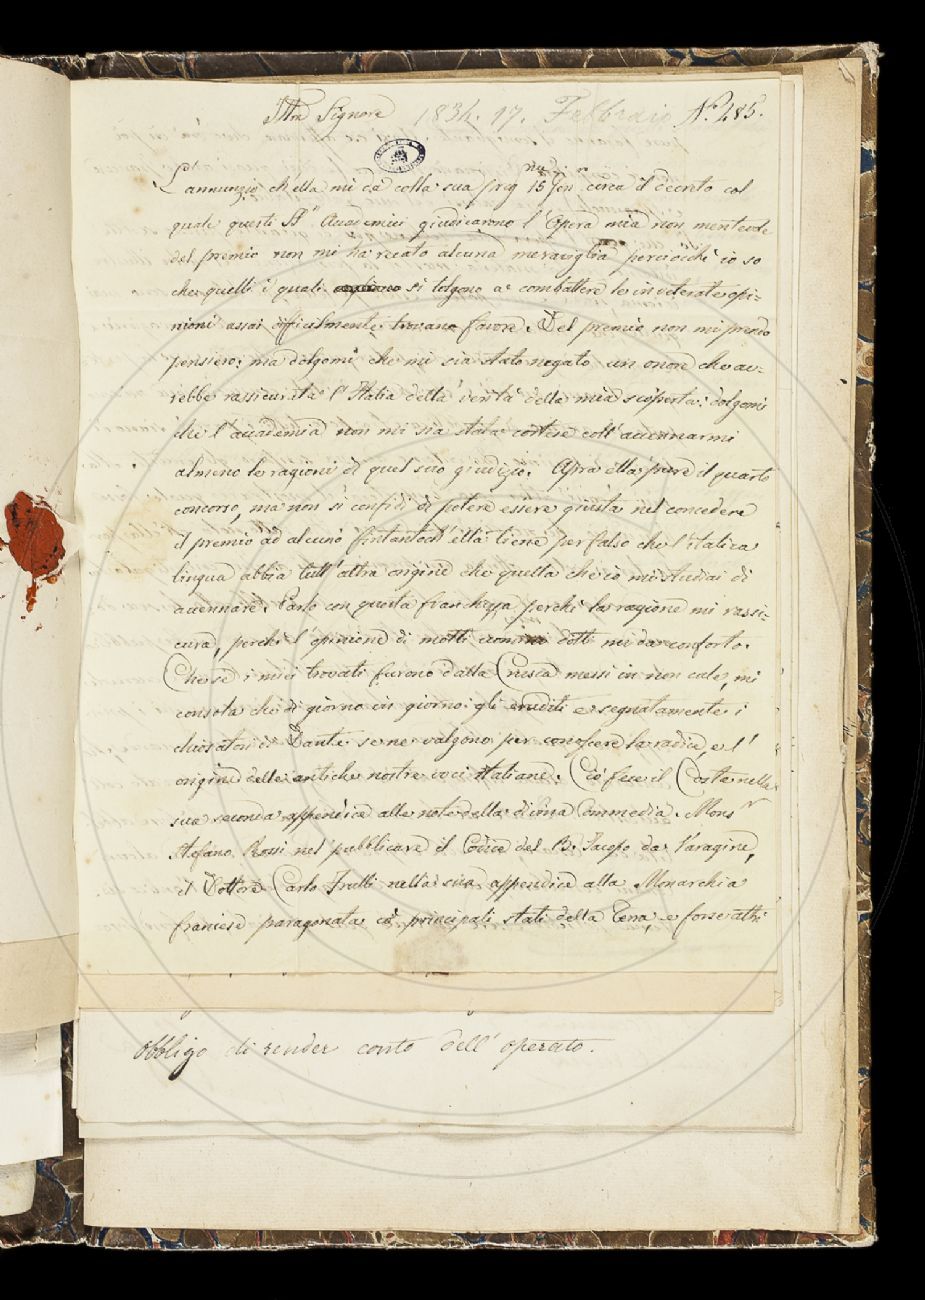 Illmo Signore 1834. 17. Febbraio N.° 485.
L'annunzio ch'ella mi dà colla sua preg 15 Gen circa il decreto col
quale questi Sri Accademici giudicarono l'Opera mia non meritevole
del premio non mi ha recato alcuna meraviglia perciocchè io so
che quelli i quali si tolgono a combattere le inveterate opi-
nioni assai difficilmente trovano favore. Del premio non mi prendo
pensiero; ma dolgomi che mi sia stato negato un onore che av-
rebbe rassicurata l'Italia della verità della mia scoperta: dolgomi
che l'accademia non mi sia stata cortese coll'accennarmi
almeno le ragioni di quel suo giudizio. Apra ella pure il quarto
concorso, ma non si confidi di potere essere giusta nel concedere
il premio ad alcuno fintantoch'ella tiene per falso che l'italica
lingua abbia tutt'altra origine che quella che io mi studiai di
accennare. Parlo con questa franchezza perchè la ragione mi rassi-
cura, perchè l'opinione di molti uomini dotti mi da conforto.
Che se i miei trovati furono dalla Crusca messi in non cale, mi
consola che di giorno in giorno gli eruditi e segnatamente i
chiosatori di Dante se ne valgono per conoscere la radice, e l'
origine delle antiche nostre voci italiane. Ciò fece il Costa nella
sua seconda appendice alle note della divina Commedia. Monsr
Stefano Rossi nel pubblicare il Codice del B. Jacopo da Varagine,
il Dottore Carlo Frulli nella sua appendice alla Monarchia
francese paragonata ai principali stati della Terra, e forse altri
obbligo di render conto dell'operato.